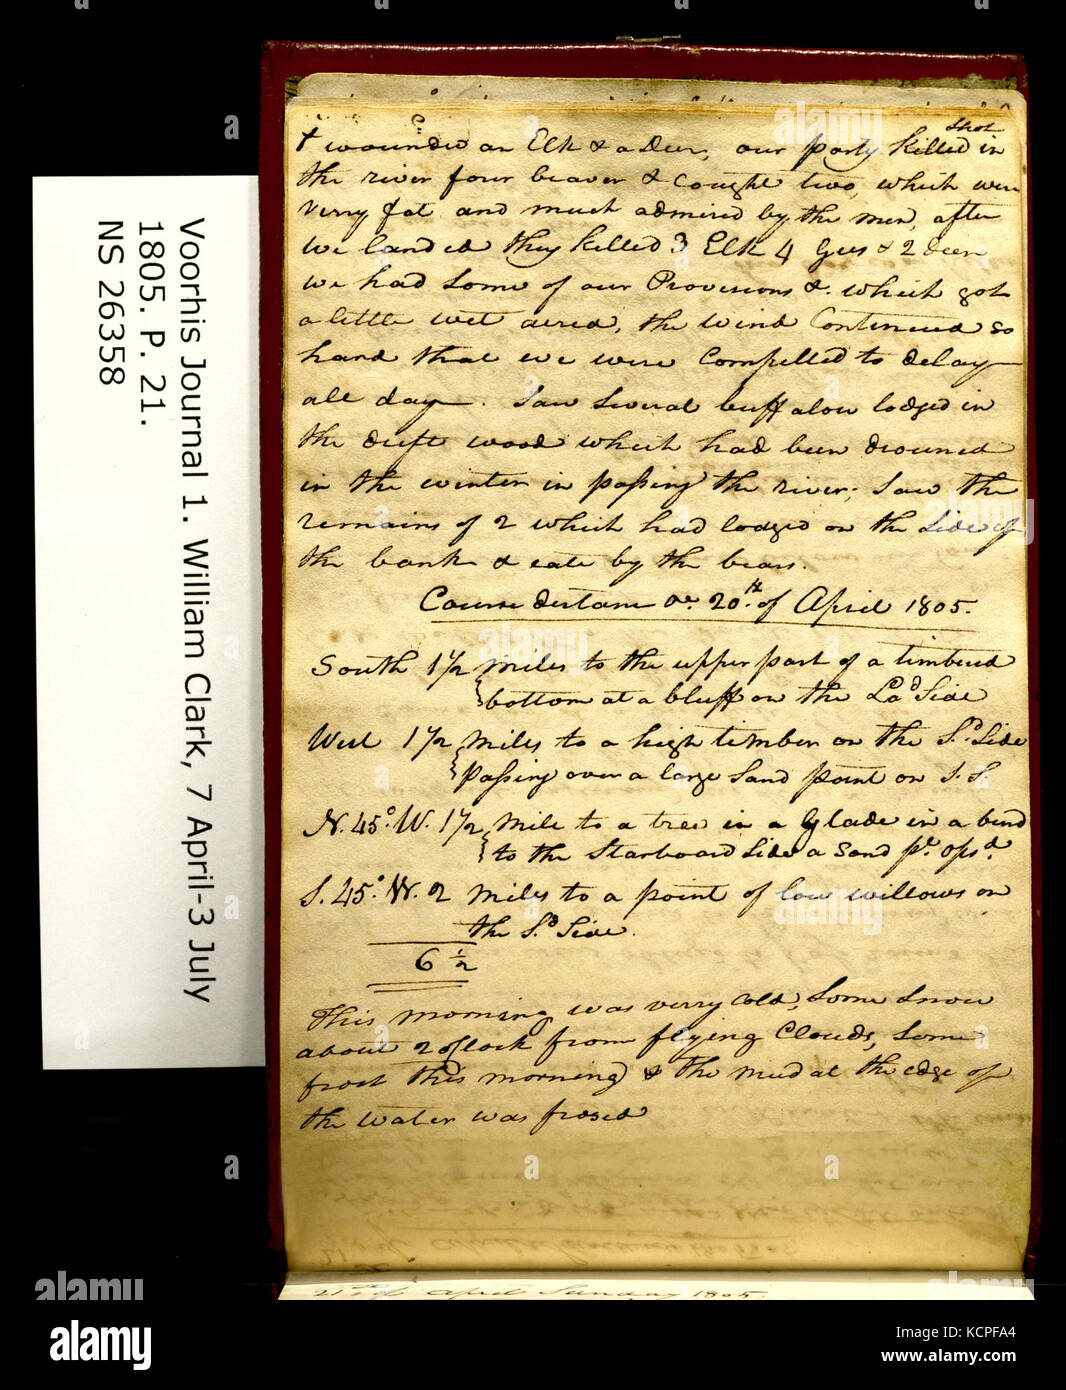 shot
& wounded an Elk & a Deer, our party killed in
the river four beaver & cought two, which were
verry fat and much admired by the men, after
we landed they killed 3 Elk 4 Gees & 2 deer
we had Some of our Provisions &. which got
a little wet aired, the wind Continued so
hard that we were Compelled to delay
all day. Saw Several buffalow lodged in
the drift wood which had been drouned
in the winter in passing the river; Saw the
remains of 2 which had lodged on the Side of
the bank & eate by the bears.
Course distance &c. 20th of April 1805.
South 1 1/2 miles to the upper part of a timbered
bottom at a bluff on the Lad Side
West 1 1/2 miles to a high timber on the Sd. Side
passing over a large Sand point on S. S.
N. 45° W. 1 1/2 mile to a tree in a Glade in a bend
to the Starboard Side a Sand pt. opsd.
S. 45° W. 2 miles to a point of low willows on
the Sd. Side.
6 1/2
This morning was verry cold, some snow
about 2 oClock from flying Clouds, Some
frost this morning & the mud at the edge of
the water was frosed
21st of April Sunday 1805.
Voorhis Journal 1. William Clark, 7 April-3 July
1805. P. 21.
NS 26358
alamy
Image ID: KCPFA4
www.alamy.com